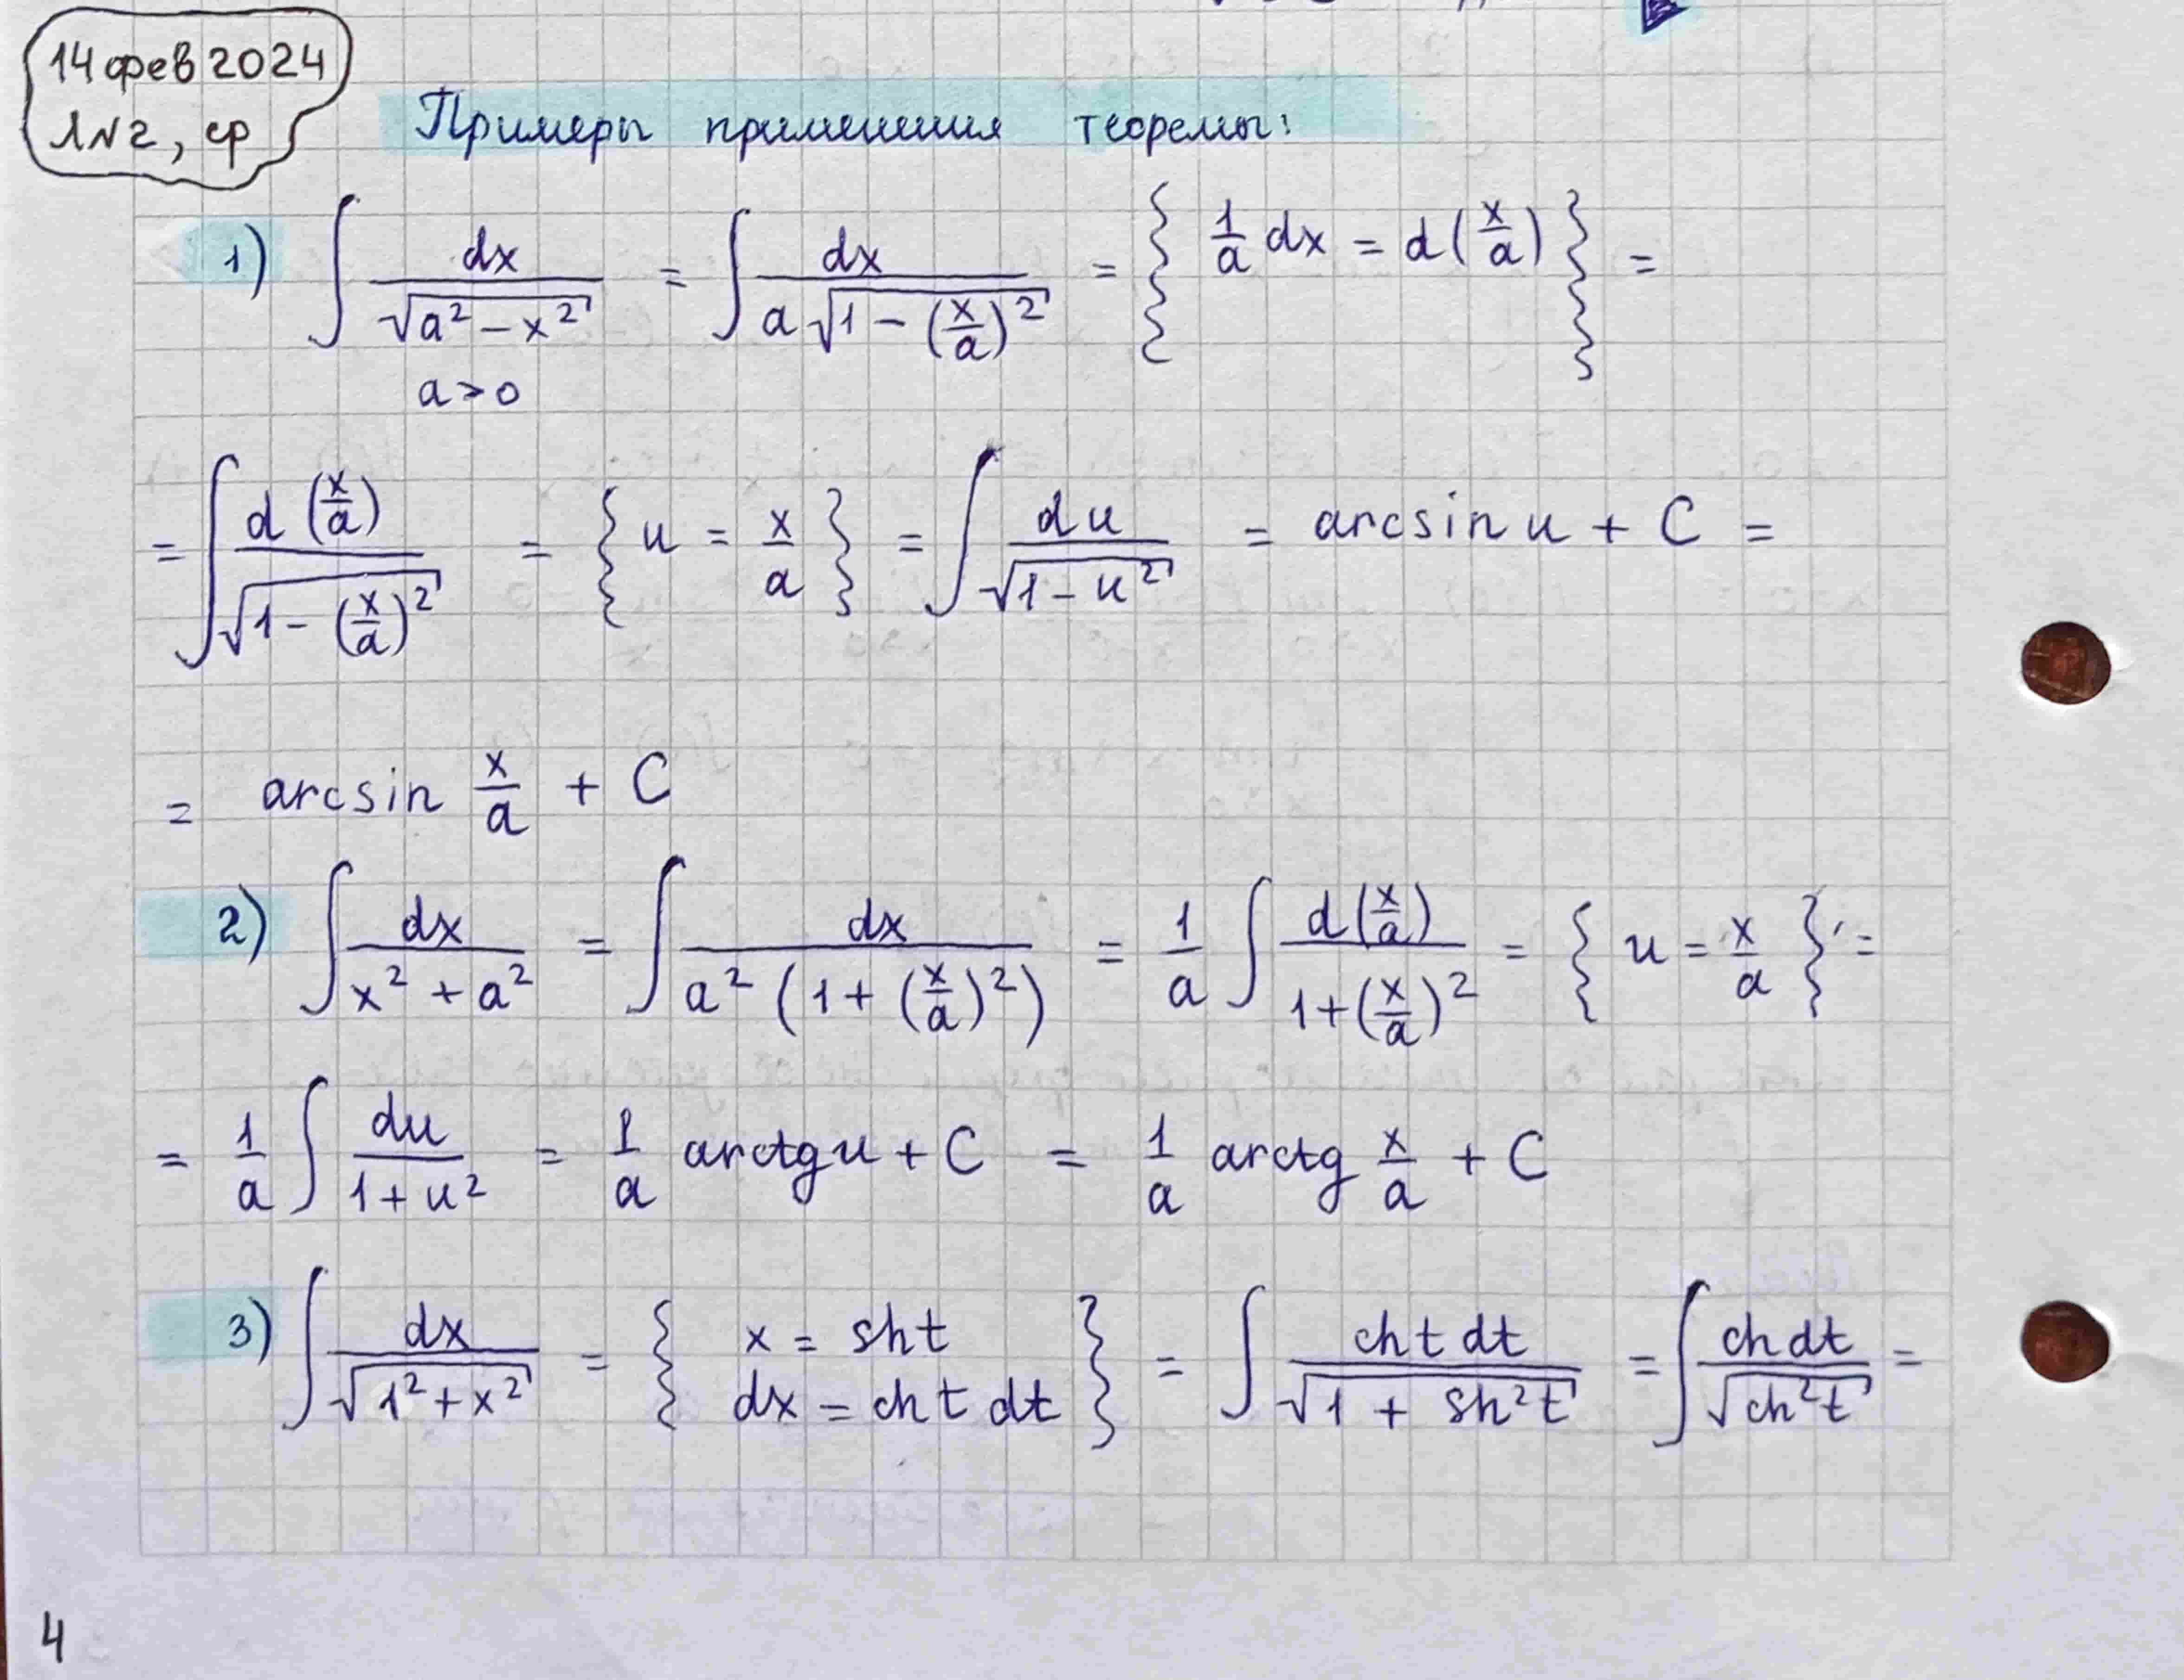 14 фев 2024
ЛN2, ср
Примеры применения теоремы:
1) ∫ dx/√(a² − x²) = ∫ dx/(a√(1 − (x/a)²)) = { 1/a dx = d(x/a) } =
a > 0
= ∫ d(x/a)/√(1 − (x/a)²) = { u = x/a } = ∫ du/√(1 − u²) = arcsin u + C =
= arcsin x/a + C
2) ∫ dx/(x² + a²) = ∫ dx/(a² (1 + (x/a)²)) = 1/a ∫ d(x/a)/(1 + (x/a)²) = { u = x/a } =
= 1/a ∫ du/(1 + u²) = 1/a arctg u + C = 1/a arctg x/a + C
3) ∫ dx/√(1² + x²) = { x = sh t
dx = ch t dt } = ∫ ch t dt/√(1 + sh²t) = ∫ ch dt/√(ch²t) =
4